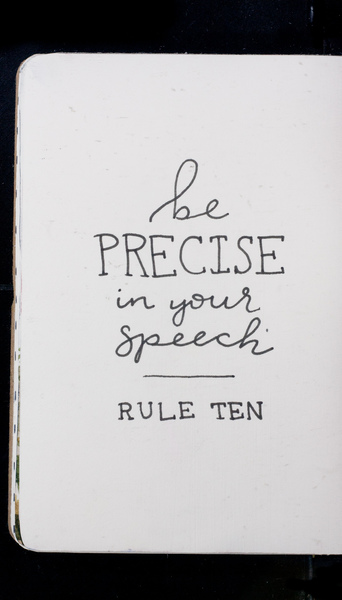 be
PRECISE
in your
speech
RULE TEN